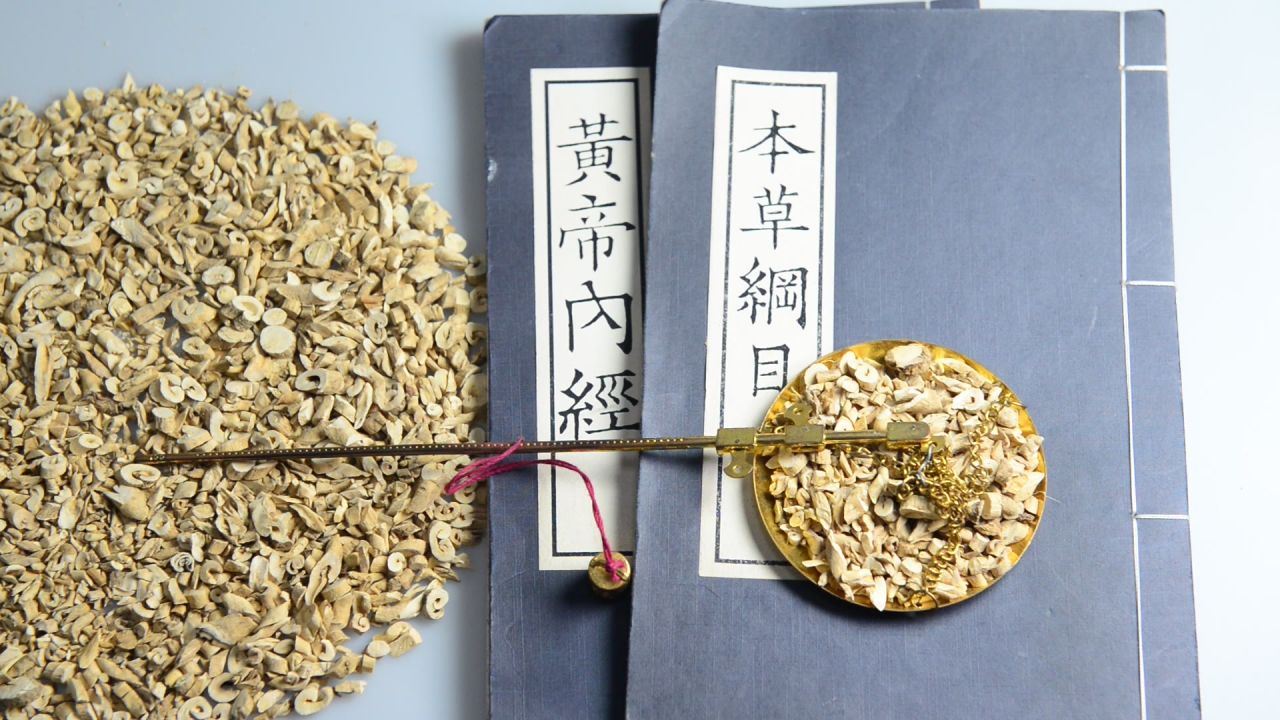 本草綱目
黃帝內經